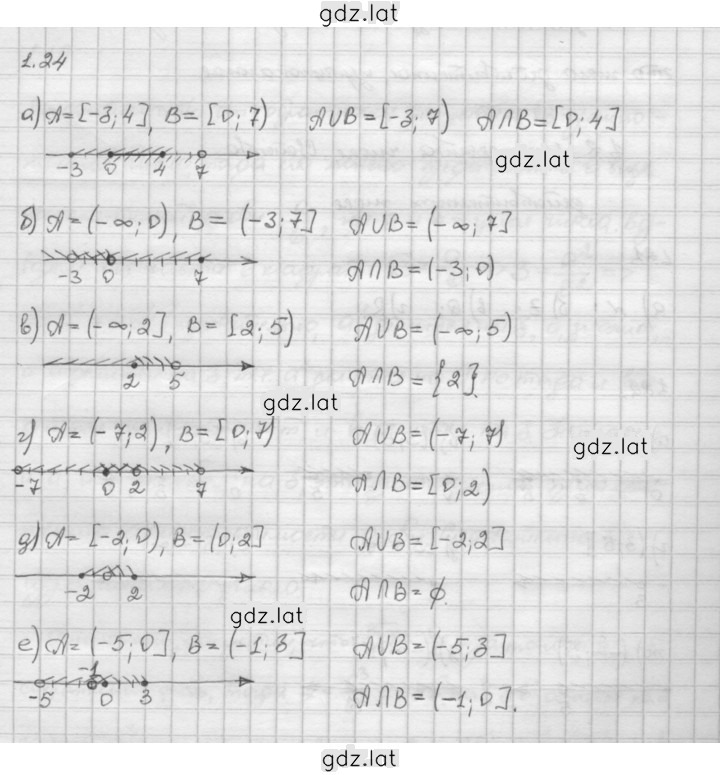 gdz.lat
1.24
а) A = [-3; 4], B = [0; 7) A∪B = [-3; 7) A∩B = [0; 4]
gdz.lat
-3 0 4 7
б) A = (-∞; 0), B = (-3; 7] A∪B = (-∞; 7]
-3 0 7 A∩B = (-3; 0)
в) A = (-∞; 2], B = [2; 5) A∪B = (-∞; 5)
2 5 A∩B = {2}.
gdz.lat
г) A = (-7; 2), B = [0; 7] A∪B = (-7; 7]
gdz.lat
-7 0 2 7 A∩B = [0; 2)
д) A = [-2; 0), B = (0; 2] A∪B = [-2; 2]
-2 2 A∩B = ϕ.
gdz.lat
е) A = (-5; 0], B = (-1; 3] A∪B = (-5; 3]
-1
-5 0 3 A∩B = (-1; 0].
gdz.lat